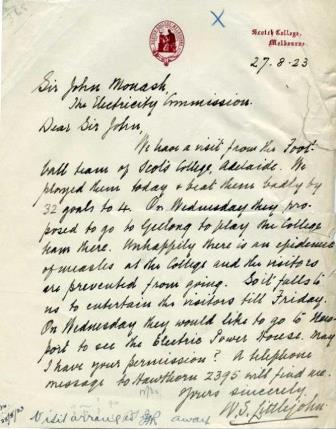 Scotch College,
Melbourne.
27-8-23
Sir John Monash,
The Electricity Commission.
Dear Sir John,
We have a visit from the Foot-
ball team of Scots College, Adelaide. We
played them today & beat them badly by
32 goals to 4. On Wednesday they pro-
posed to go to Geelong to play the College
team there. Unhappily there is an epidemic
of measles at the College and the visitors
are prevented from going. So it falls to
us to entertain the visitors till Friday.
On Wednesday they would like to go to New-
port to see the Electric Power House. May
I have your permission? A telephone
message to Hawthorn 2395 will find me.
Yours sincerely
W. S. Littlejohn.
Visit arranged